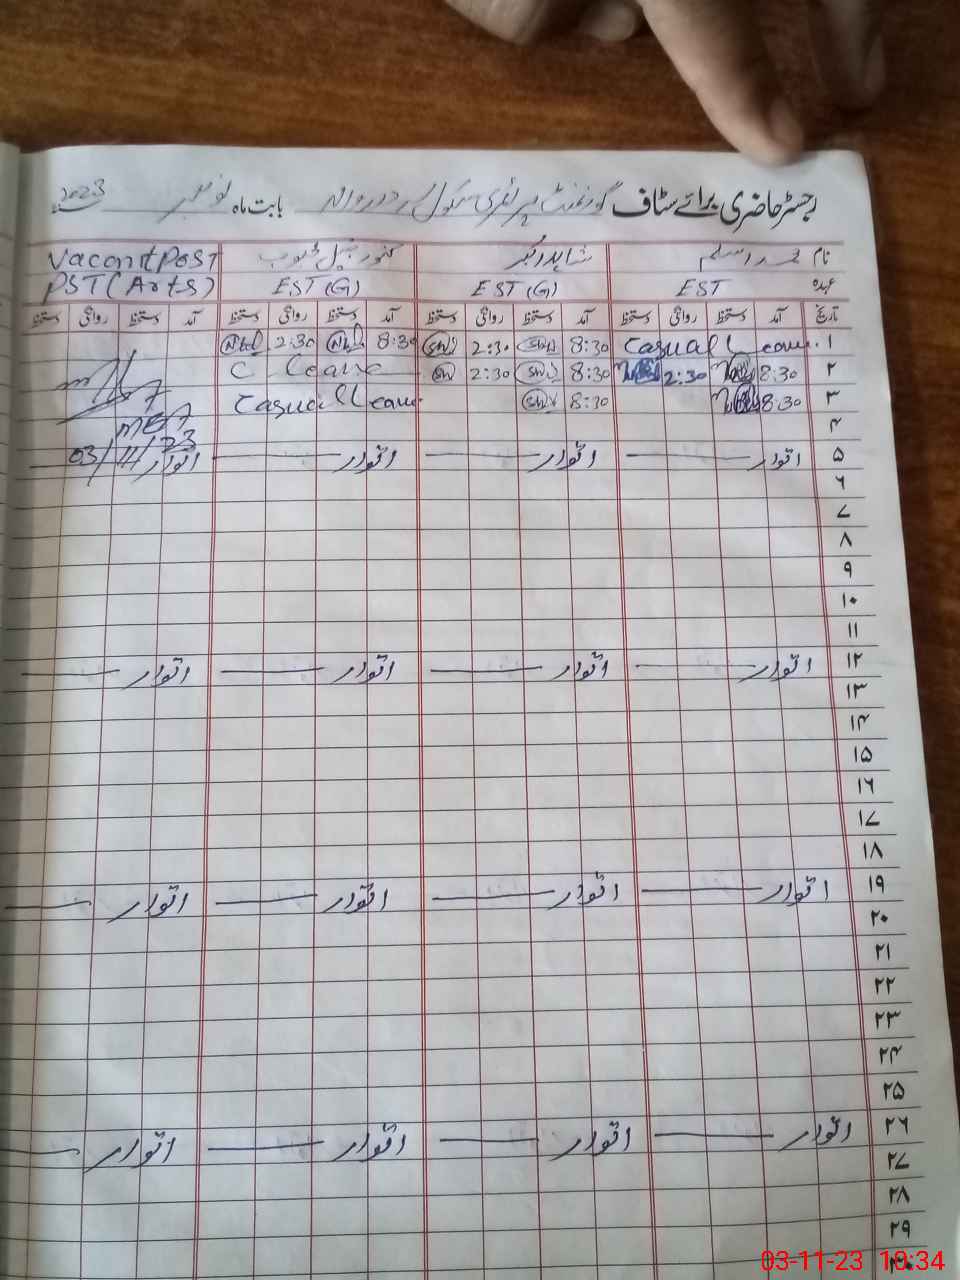 رجسٹر حاضری برائے سٹاف گورنمنٹ پرائمری سکول بابت ماہ نومبر 2023
نام محمد اسلم شاہد اکبر Vacant Post
عہدہ EST EST (G) EST (G) PST (Arts)
تاریخ آمد دستخط روانگی دستخط آمد دستخط روانگی دستخط آمد دستخط روانگی دستخط آمد دستخط روانگی دستخط
۱ Casual Leave 8:30 2:30 8:30 2:30
۲ 8:30 2:30 8:30 2:30 C Leave
۳ 8:30 8:30 Casual Leave
۴
03/11/23
۵ اتوار اتوار اتوار اتوار
۶
۷
۸
۹
۱۰
۱۱
۱۲ اتوار اتوار اتوار اتوار
۱۳
۱۴
۱۵
۱۶
۱۷
۱۸
۱۹ اتوار اتوار اتوار اتوار
۲۰
۲۱
۲۲
۲۳
۲۴
۲۵
۲۶ اتوار اتوار اتوار اتوار
۲۷
۲۸
۲۹
۳۰
03-11-23 10:34